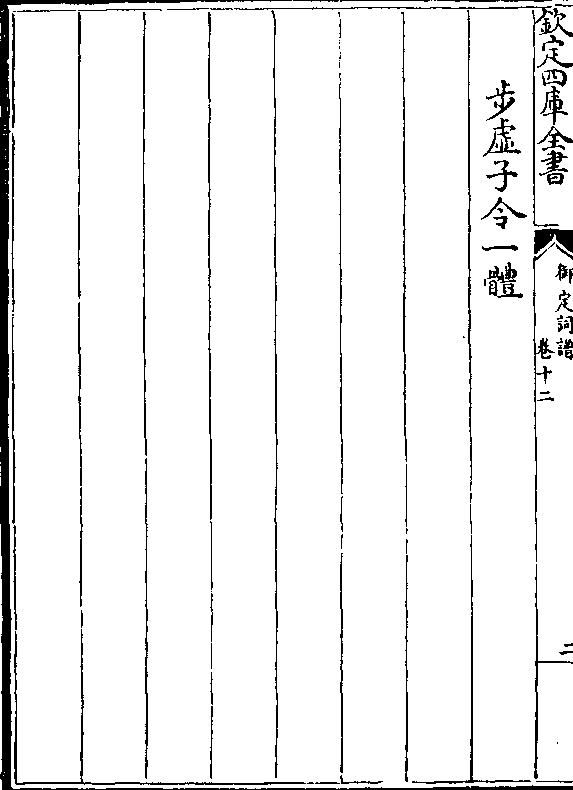 欽定四庫全書
御定詞譜
卷十二
二
步虛子令一體